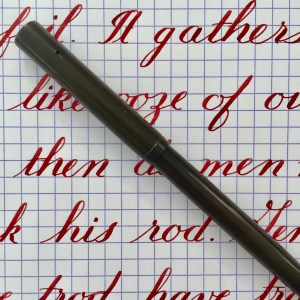 foil. It gathers
like ooze of oi
then do men
k his rod. Gen
trod, have tr